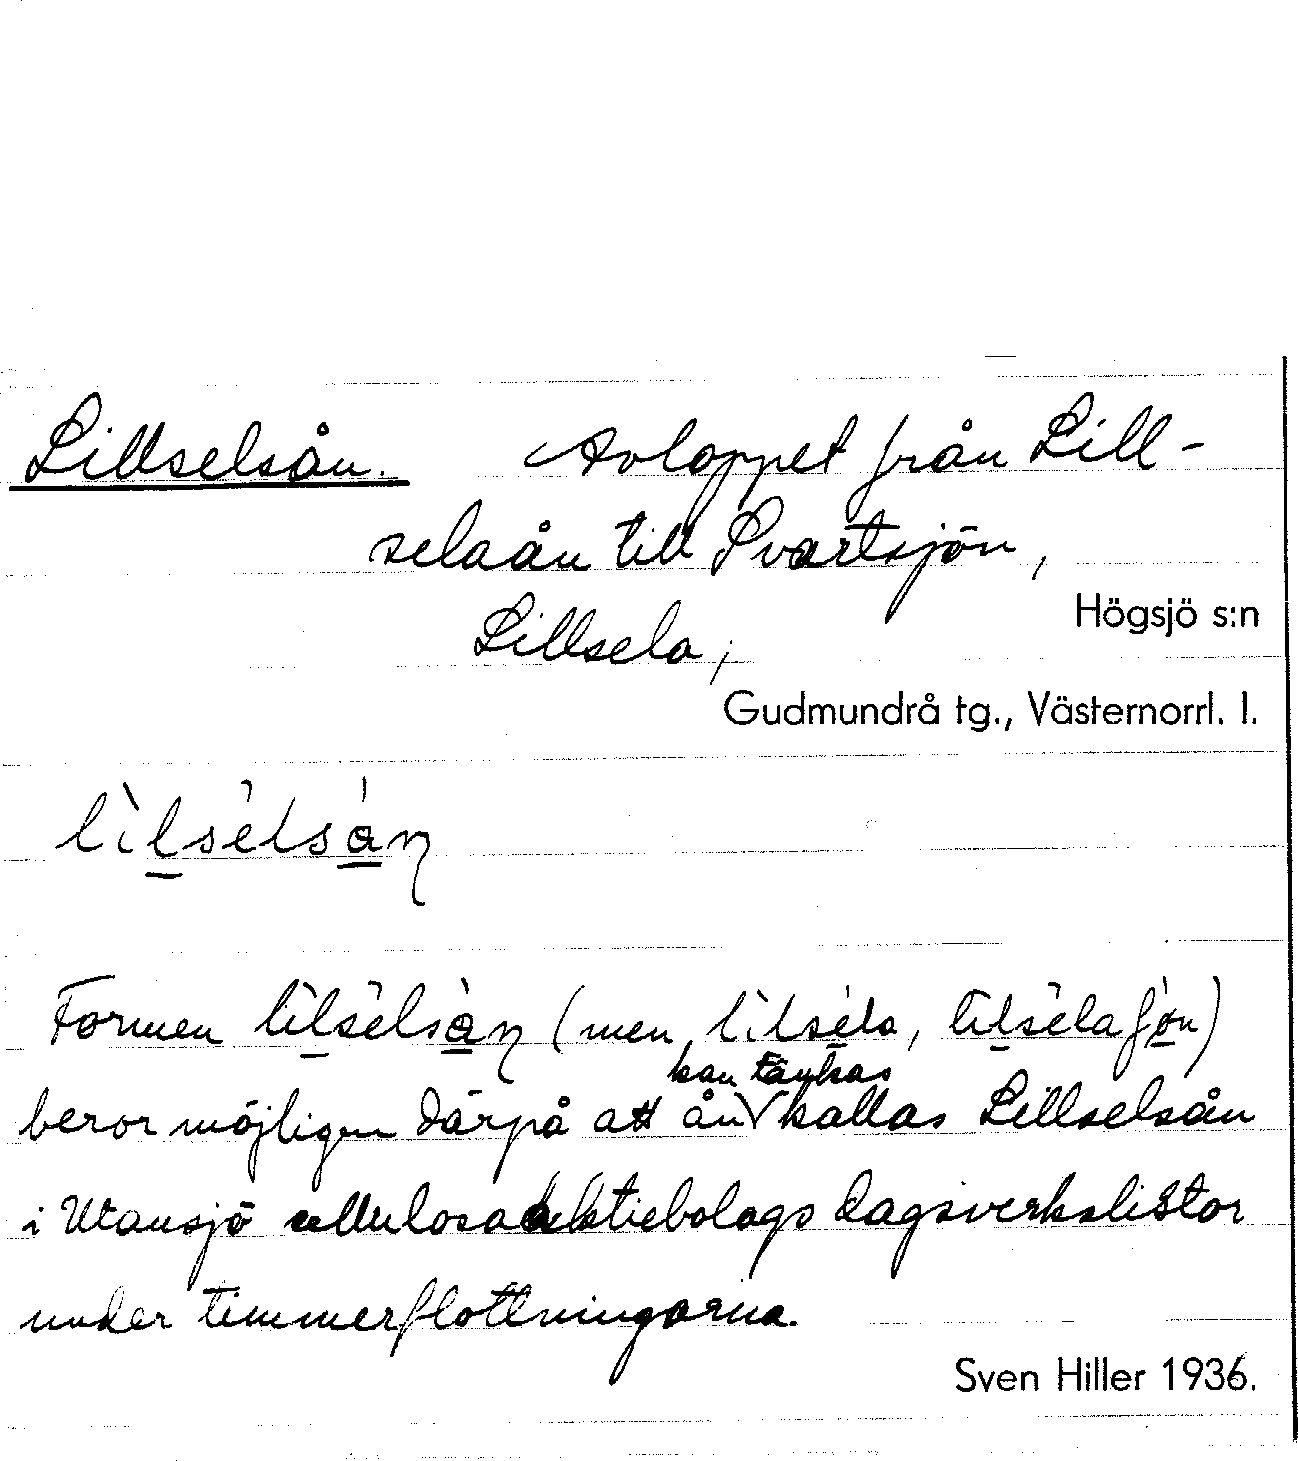 Lillselsån. Avloppet från Lill-
selaån till Svartsjön,
Högsjö s:n
Lillsela,
Gudmundrå tg., Västernorrl. l.
lìlsélsán
Formen lìlsélsàn (men lìlséla, lìlsélafjòn)
kan tänkas
beror möjligen därpå att ån √ kallas Lillselsån
i Utansjö cellulosaaktiebolags dagsverkslistor
under timmerflottningarna.
Sven Hiller 1936.